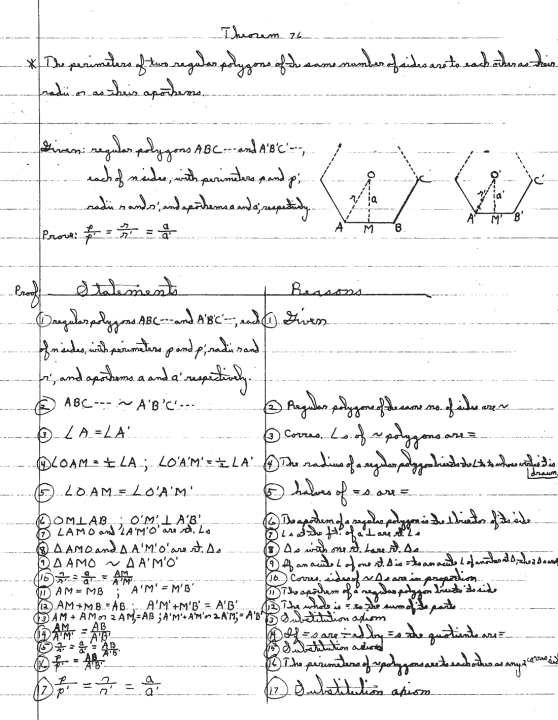 Theorem 76
* The perimeters of two regular polygons of the same number of sides are to each other as their
radii or as their apothems.
Given: regular polygons ABC--- and A'B'C'---,
each of n sides, with perimeters p and p',
radii r and r', and apothems a and a', respectively.
Prove: p/p' = r/r' = a/a'
O C r a A M B
O' C' r' a' A' M' B'
Proof Statements Reasons
① regular polygons ABC--- and A'B'C'---, each ① Given
of n sides, with perimeters p and p', radii r and
r', and apothems a and a' respectively.
② ABC--- ~ A'B'C'--- ② Regular polygons of the same no. of sides are ~
③ ∠A = ∠A' ③ Corres. ∠s of ~ polygons are =
④ ∠OAM = ½ ∠A ; ∠O'A'M' = ½ ∠A' ④ The radius of a regular polygon bisects the ∠ to whose vertex it is drawn
⑤ ∠OAM = ∠O'A'M' ⑤ halves of =s are =
⑥ OM ⊥ AB ; O'M' ⊥ A'B' ⑥ The apothem of a regular polygon is the ⊥ bisector of the side
⑦ ∠AMO and ∠A'M'O' are rt. ∠s ⑦ ∠s at the ft. of a ⊥ are rt. ∠s
⑧ △AMO and △A'M'O' are rt. △s ⑧ △s with one rt. ∠ are rt. △s
⑨ △AMO ~ △A'M'O' ⑨ If an acute ∠ of one rt. △ is = to an acute ∠ of another rt. △, the 2 △s are ~
⑩ r/r' = a/a' = AM/A'M' ⑩ Corres. sides of ~ △s are in proportion
⑪ AM = MB ; A'M' = M'B' ⑪ The apothem of a regular polygon bisects its side
⑫ AM+MB = AB ; A'M'+M'B' = A'B' ⑫ The whole is = to the sum of its parts
⑬ AM + AM or 2AM = AB ; A'M'+A'M' or 2A'M' = A'B' ⑬ Substitution axiom
⑭ AM/A'M' = AB/A'B' ⑭ If =s are ÷ed by =s the quotients are =
⑮ r/r' = a/a' = AB/A'B' ⑮ Substitution axiom
⑯ p/p' = AB/A'B' ⑯ The perimeters of ~ polygons are to each other as any 2 corres. sides
⑰ p/p' = r/r' = a/a' ⑰ Substitution axiom